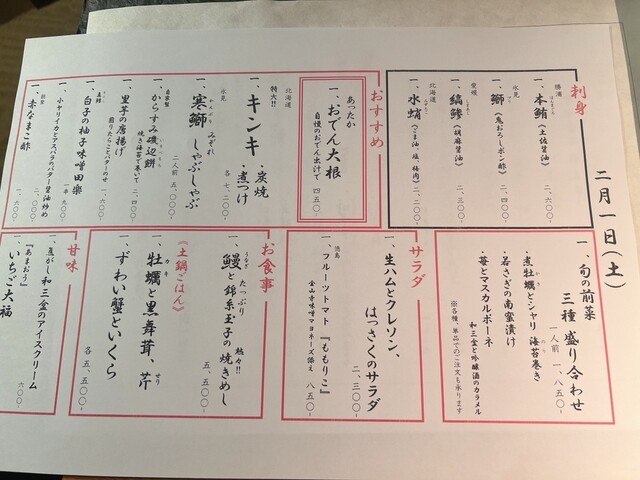 二月一日（土）
刺身
勝浦
一、本鮪（土佐醤油）
二、六〇〇-
氷見
一、鰤（鬼おろしポン酢）
二、四〇〇-
愛媛
一、縞鯵（胡麻醤油）
二、三〇〇-
北海道
一、水蛸（ごま油、塩、梅肉）
二、〇〇〇-
おすすめ
あったか
一、おでん大根
自慢のおでん出汁で
四五〇-
北海道
特大!!
一、キンキ ・炭焼
・煮つけ
各 七、二〇〇-
氷見
みぞれ
一、寒鰤 しゃぶしゃぶ
二人前 五、〇〇〇-
自家製
一、からすみ磯辺餅
焼き海苔で巻いて
二、四〇〇-
一、里芋の唐揚げ
煎りたらことバターのせ
一、六〇〇-
一、白子の柚子味噌田楽
一本 九〇〇-
一、小ヤリイカとアスパラのバター醤油炒め
二、〇〇〇-
一、赤なまこ酢
一、六〇〇-
一、旬の前菜
三種盛り合わせ
一人前 一、八五〇-
・煮牡蠣とシャリ 海苔巻き
・若さぎの南蛮漬け
・苺とマスカルポーネ
和三盆と吟醸酒のカラメル
※各種、単品でのご注文も承ります
サラダ
一、生ハムとクレソン、
はっさくのサラダ
二、三〇〇-
徳島
一、フルーツトマト『ももりこ』
金山寺味噌マヨネーズ添え
八五〇-
お食事
たっぷり 熱々!!
一、鰻と錦糸玉子の焼きめし
五、五〇〇-
《土鍋ごはん》
一、牡蠣と黒舞茸、芹
一、ずわい蟹といくら
各 五、五〇〇-
甘味
一、焦がし和三盆のアイスクリーム
『あまおう』
一、いちご大福
六〇〇-